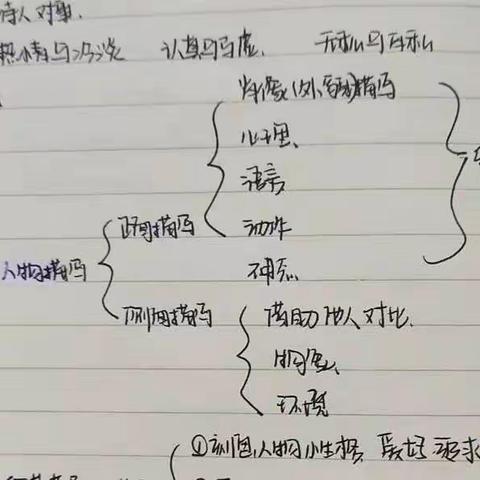 待人对事.
热情与冷淡 认真与马虚. 无私与自私
肖像(外貌)描写
心理、
语言
正面描写 动作
人物描写 神态.
侧面描写 借助他人对比.
物
环境
①刻画人物小性格 爱好 追求